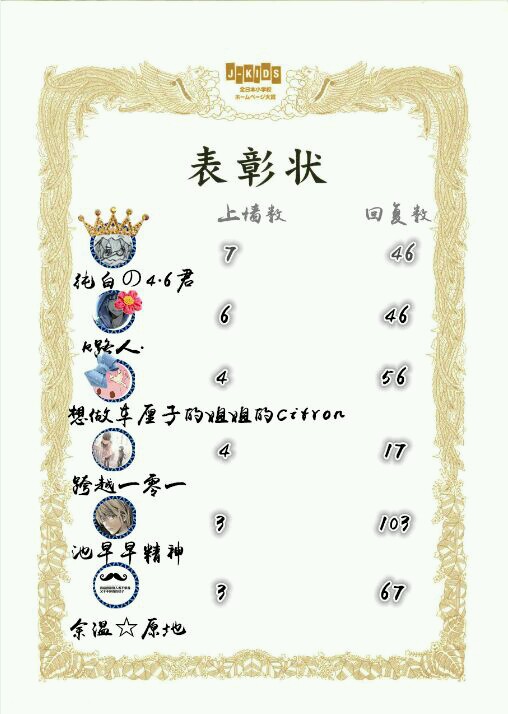 J-KIDS
全日本小学校
ホームページ大賞
表彰状
上墙数 回复数
7 46
纯白の4.6君
6 46
K路人.
4 56
想做车厘子的姐姐的Citron
4 17
跨越一零一
3 103
池早早精神
3 67
余温☆原地